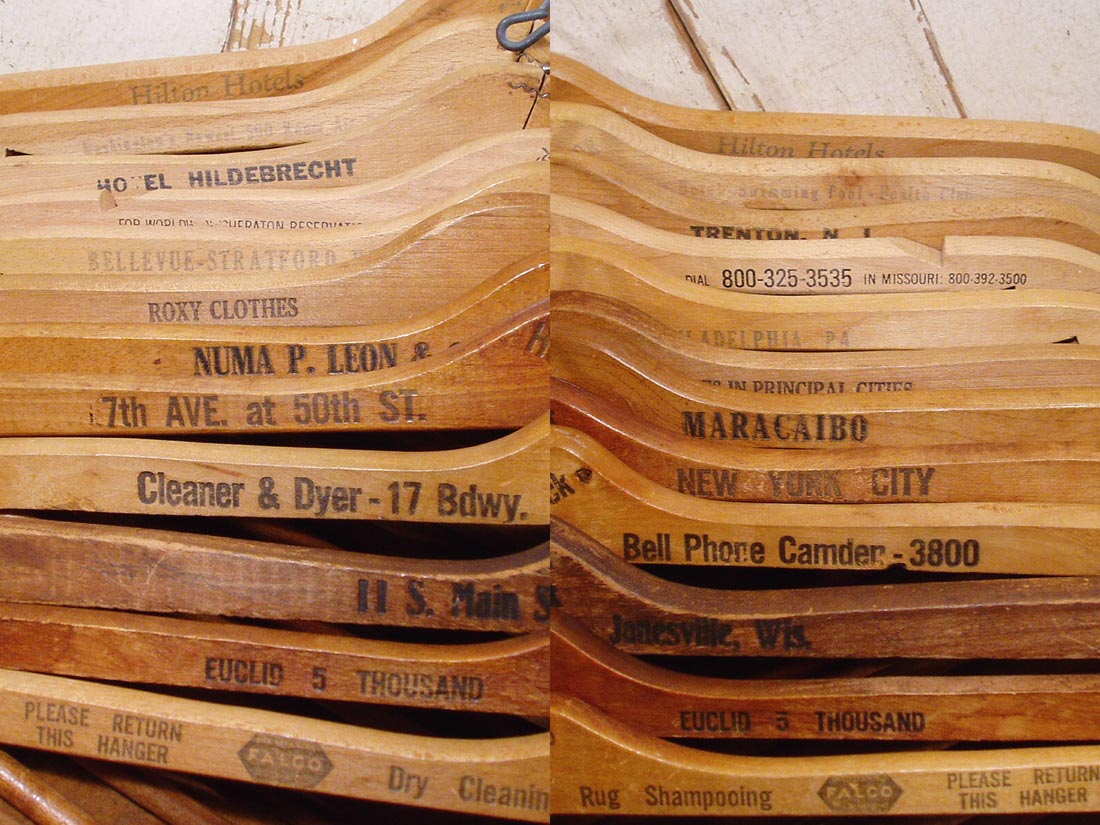 Hilton Hotels
500 Room
HOTEL HILDEBRECHT
FOR WORLDW SHERATON RESERVATI
BELLEVUE-STRATFORD
ROXY CLOTHES
NUMA P. LEON &
7th AVE. at 50th ST.
Cleaner & Dyer - 17 Bdwy.
11 S. Main S
EUCLID 5 THOUSAND
PLEASE RETURN
THIS HANGER
FALCO
Dry Cleanin
Hilton Hotels
Swimming Pool
TRENTON, N. J.
DIAL 800-325-3535 IN MISSOURI: 800-392-3500
LADELPHIA, PA
IN PRINCIPAL CITIES
MARACAIBO
NEW YORK CITY
Bell Phone Camden - 3800
Janesville, Wis.
EUCLID 5 THOUSAND
Rug Shampooing
FALCO
PLEASE RETURN
THIS HANGER